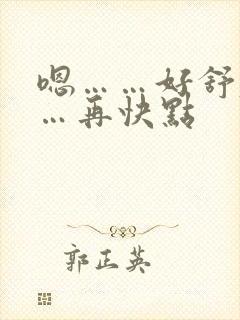 嗯……好舒
…再快點
郭正英